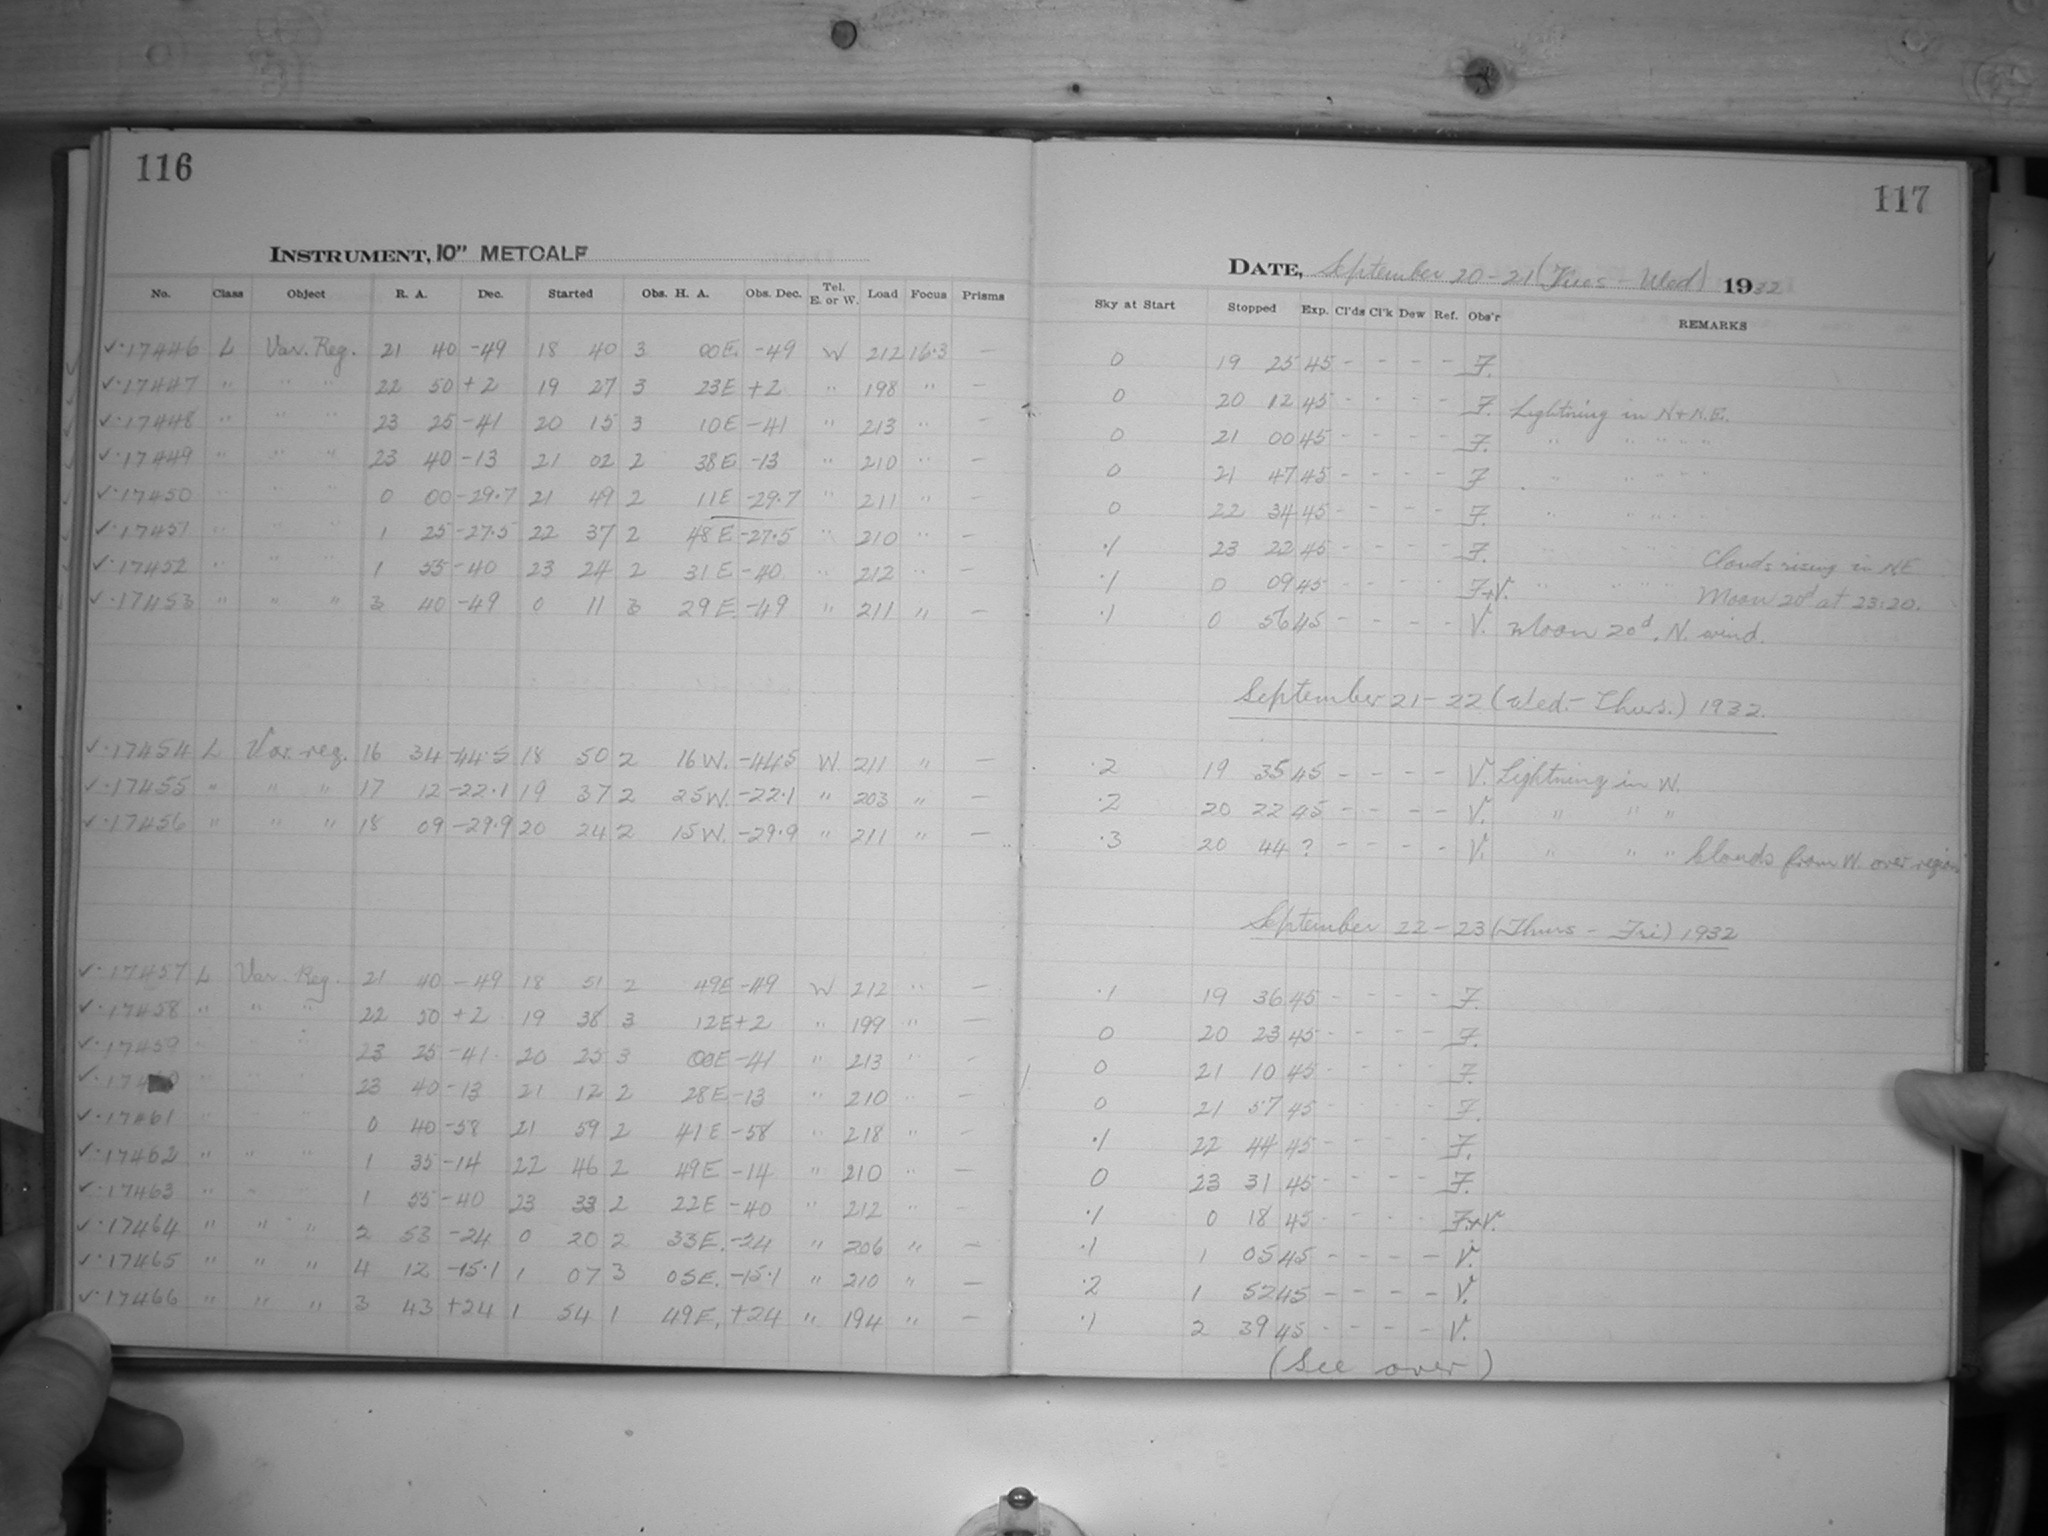 116
INSTRUMENT, 10" METCALF
No. Class Object R. A. Dec. Started Obs. H. A. Obs. Dec. Tel. E. or W. Load Focus Prisms
✓·17446 L Var. Reg. 21 40 -49 18 40 3 00E. -49 W 212 16.3 —
✓·17447 " " " 22 50 +2 19 27 3 23E +2 " 198 " —
✓·17448 " " " 23 25 -41 20 15 3 10E -41 " 213 " —
✓·17449 " " " 23 40 -13 21 02 2 38E -13 " 210 " —
✓·17450 " " " 0 00 -29.7 21 49 2 11E -29.7 " 211 " —
✓·17451 " " " 1 25 -27.5 22 37 2 48E -27.5 " 210 " —
✓·17452 " " " 1 55 -40 23 24 2 31E -40 " 212 " —
✓·17453 " " " 3 40 -49 0 11 3 29E. -49 " 211 " —
✓·17454 L Var. reg. 16 34 -44.5 18 50 2 16W. -44.5 W. 211 " —
✓·17455 " " " 17 12 -22.1 19 37 2 25W. -22.1 " 203 " —
✓·17456 " " " 18 09 -29.9 20 24 2 15W. -29.9 " 211 " —
✓·17457 L Var. Reg. 21 40 -49 18 51 2 49E -49 W 212 " —
✓·17458 " " " 22 50 +2 19 38 3 12E +2 " 199 " —
✓·17459 " " " 23 25 -41 20 25 3 00E -41 " 213 " —
✓· " " " 23 40 -13 21 12 2 28E -13 " 210 " —
✓·17461 " " " 0 40 -58 21 59 2 41E -58 " 218 " —
✓·17462 " " " 1 35 -14 22 46 2 49E -14 " 210 " —
✓·17463 " " " 1 55 -40 23 33 2 22E -40 " 212 " —
✓·17464 " " " 2 53 -24 0 20 2 33E. -24 " 206 " —
✓·17465 " " " 4 12 -15.1 1 07 3 05E. -15.1 " 210 " —
✓·17466 " " " 3 43 +24 1 54 1 49E. +24 " 194 " —
117
DATE, September 20-21 (Tues - Wed) 1932
Sky at Start Stopped Exp. Cl'ds Cl'k Dew Ref. Obs'r REMARKS
0 19 25 45 - - - - F.
0 20 12 45 - - - - F. Lightning in N+N.E.
0 21 00 45 - - - - F. " " " " "
0 21 47 45 - - - - F " " " " "
0 22 34 45 - - - - F. " " " " "
.1 23 22 45 - - - - F. " " " " Clouds rising in NE
.1 0 09 45 - - - - F+V. " " " " Moon 20d at 23:20.
.1 0 56 45 - - - - V. Moon 20d. N. wind.
September 21-22 (Wed.- Thurs.) 1932.
.2 19 35 45 - - - - V. Lightning in W.
.2 20 22 45 - - - - V. " " "
.3 20 44 ? - - - - V. " " " Clouds from W. over region
September 22-23 (Thurs - Fri) 1932
.1 19 36 45 - - - - F.
0 20 23 45 - - - - F.
0 21 10 45 - - - - F.
0 21 57 45 - - - - F.
.1 22 44 45 - - - - F.
0 23 31 45 - - - - F.
.1 0 18 45 - - - - F.+V.
.1 1 05 45 - - - - V.
.2 1 52 45 - - - - V.
.1 2 39 45 - - - - V.
(See over)